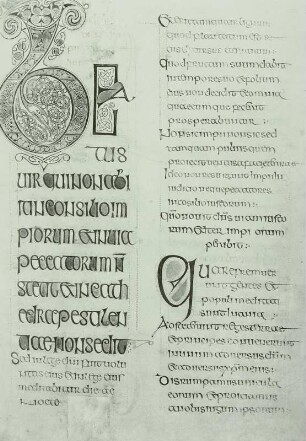 BE
ATUS
UIR QUI NON ABI
IT IN CONSILIO IM
PIORUM ET IN UIA
PECCATORUM N̄
STETIT ET IN CATH
EDRA PESTILEN
TIAE NON SEDIT
Sed in lege dni fuit uolun
tas eius et in lege eius
meditabitur die ac
nocte
Et erit tamquam lignum
quod plantatum est
cursus aquarum
Quod fructum suum dabit
in tempore suo et folium
eius non decidet et omnia
quaecumque fecerit
prosperabuntur
Non sic impii non sic sed
tamquam puluis quem
proicit uentus a facie terrae
Ideo non resurgunt impii in
iudicio neque peccatores
in consilio iustorum
Quoniam nouit dns uiam iusto
rum et iter impiorum
peribit
Quare fremuer
unt gentes et
populi meditati
sunt inania
Adstiterunt reges terrae
et principes conuenerunt
in unum aduersus dnm
et aduersus xpm eius
Disrumpamus uincula
eorum et proiciamus
a nobis iugum ipsorum